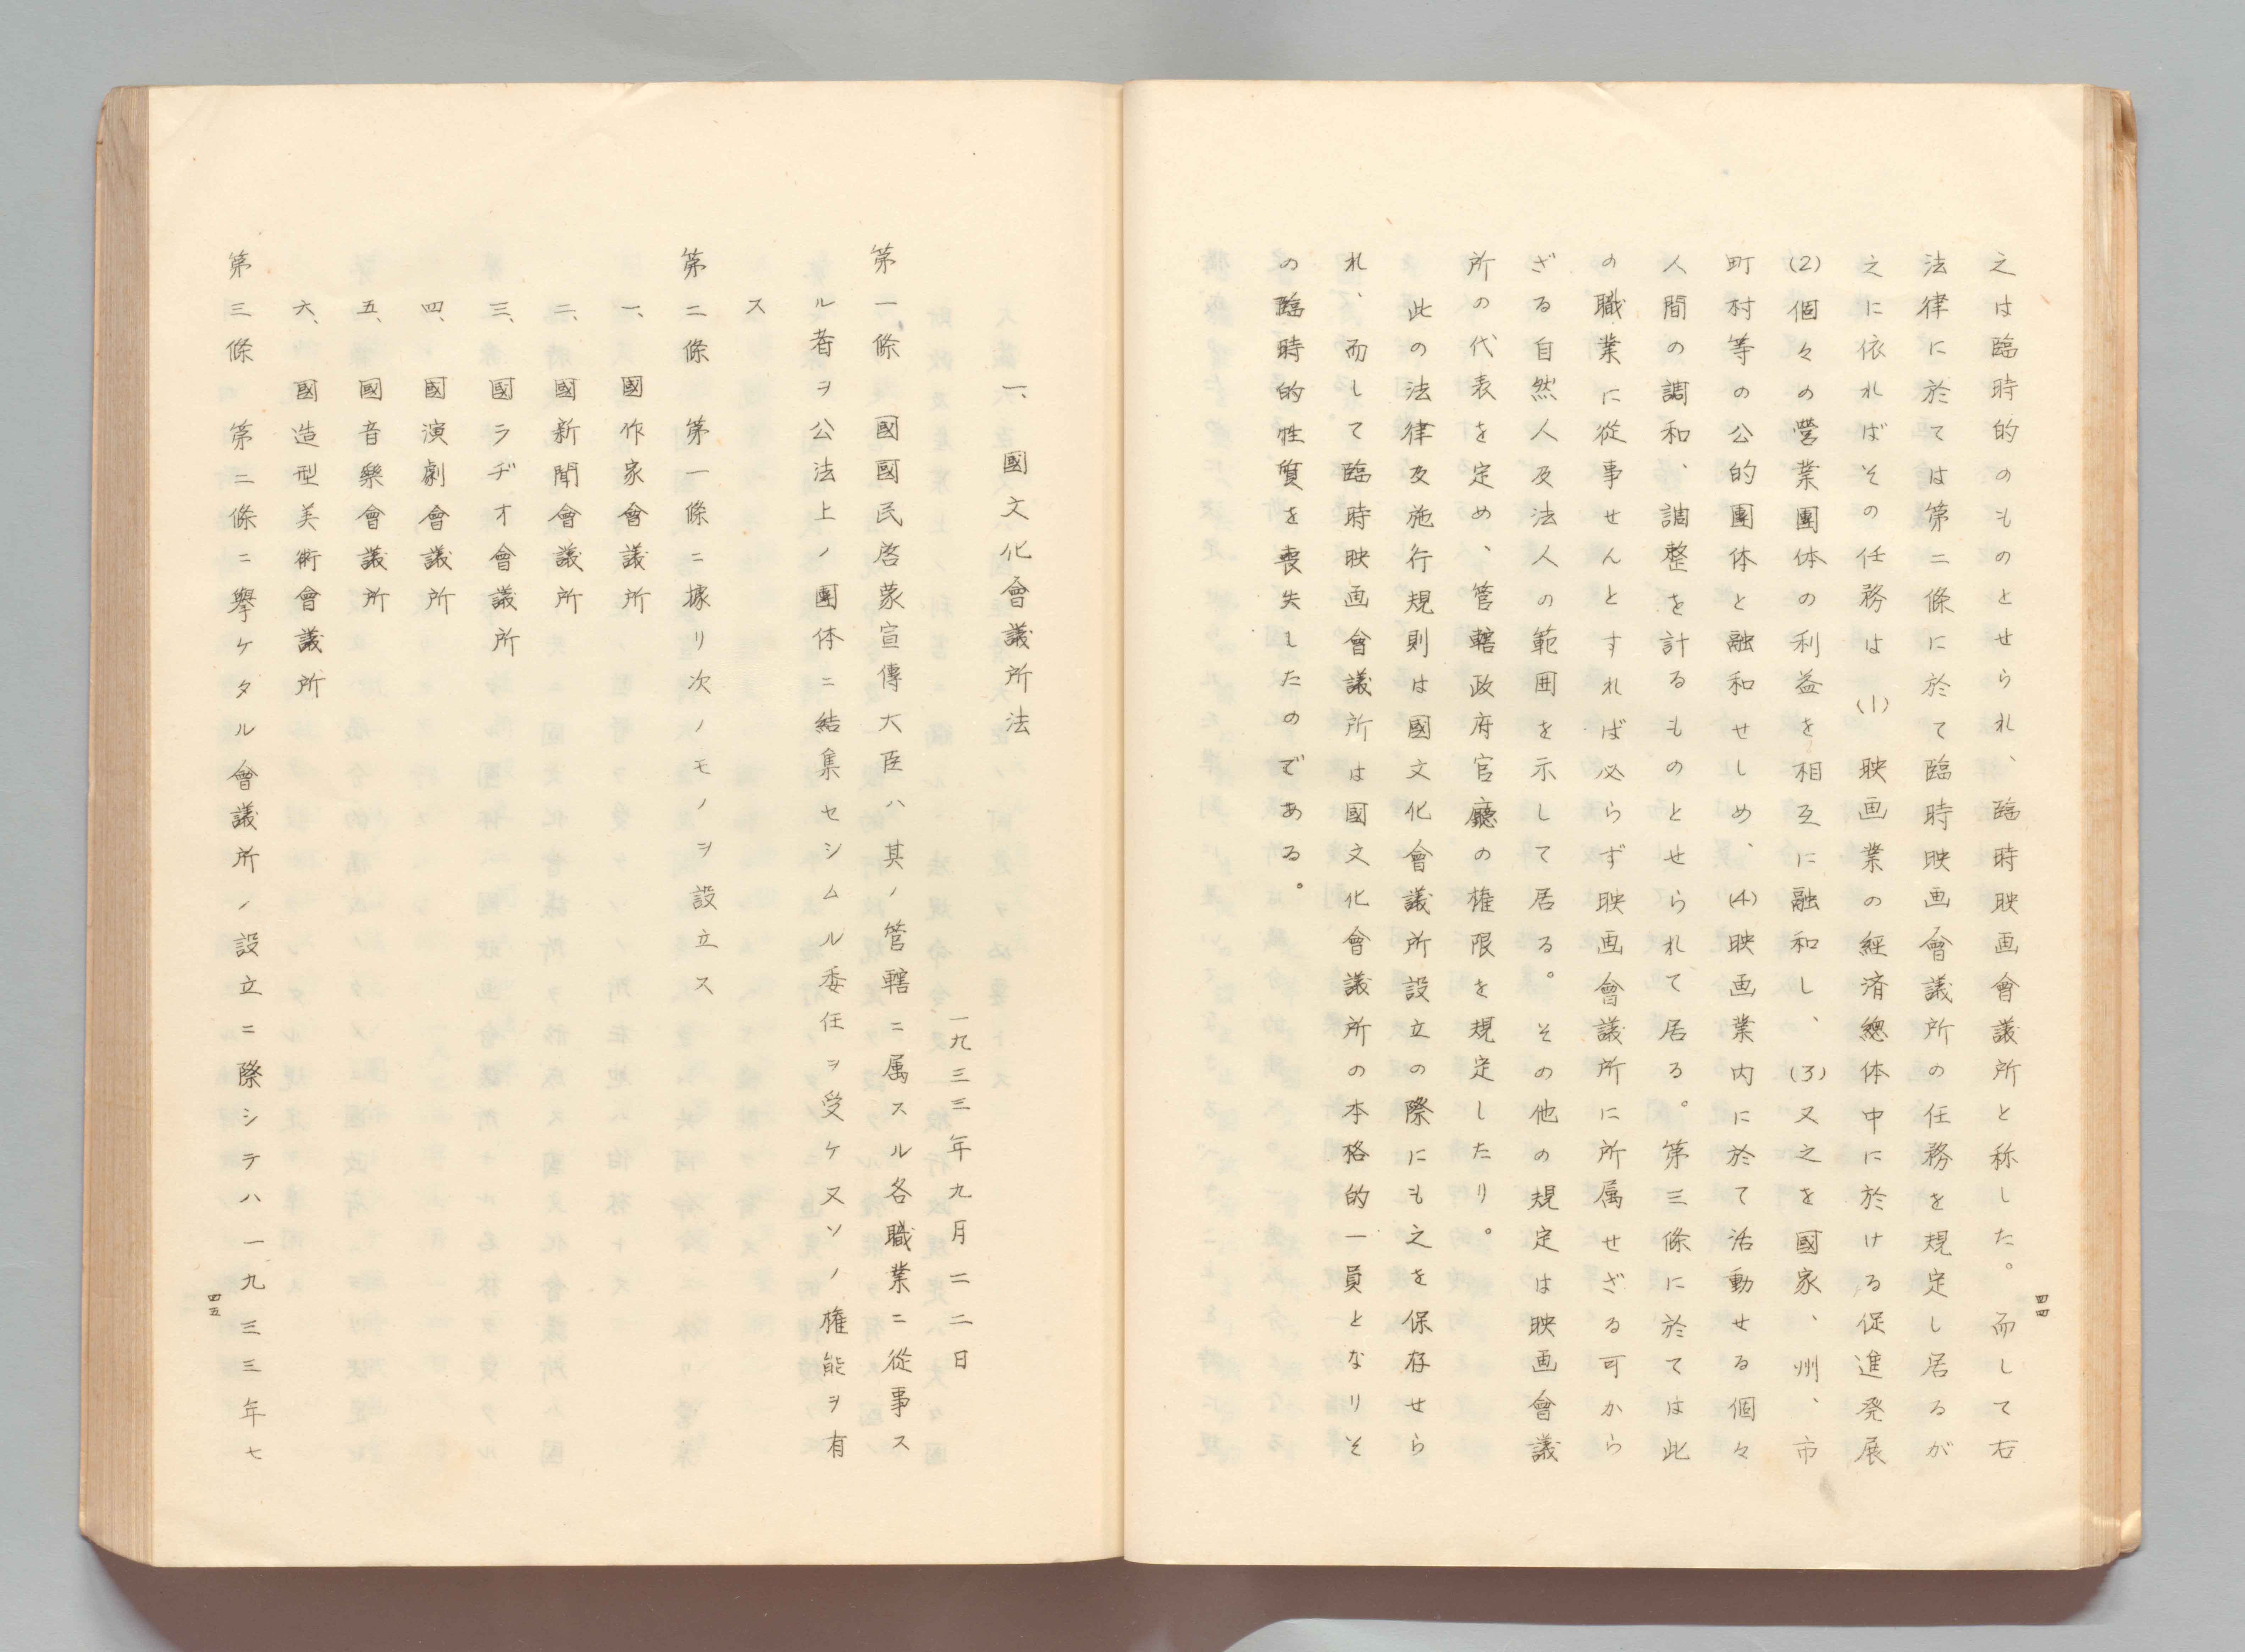 之は臨時的のものとせられ、臨時映画會議所と称した。而して右
法律に於ては第二條に於て臨時映画會議所の任務を規定し居るが
之に依ればその任務は (1) 映画業の経済總体中に於ける促進発展
(2)個々の營業團体の利益を相互に融和し、(3)又之を國家、州、市
町村等の公的團体と融和せしめ、(4)映画業内に於て活動せる個々
人間の調和、調整を計るものとせられて居る。第三條に於ては此
の職業に從事せんとすれば必らず映画會議所に所属せざる可から
ざる自然人及法人の範囲を示して居る。その他の規定は映画會議
所の代表を定め、管轄政府官廳の権限を規定したり。
此の法律及施行規則は國文化會議所設立の際にも之を保存せら
れ、而して臨時映画會議所は國文化會議所の本格的一員となりそ
の臨時的性質を喪失したのである。
四四
一、國文化會議所法
一九三三年九月二二日
第一條 國國民啓蒙宣傳大臣ハ其ノ管轄ニ属スル各職業ニ從事ス
ル者ヲ公法上ノ團体ニ結集セシムル委任ヲ受ケ又ソノ権能ヲ有
ス
第二條 第一條ニ據リ次ノモノヲ設立ス
一、國作家會議所
二、國新聞會議所
三、國ラヂオ會議所
四、國演劇會議所
五、國音樂會議所
六、國造型美術會議所
第三條 第二條ニ擧ケタル會議所ノ設立ニ際シテハ一九三三年七
四五